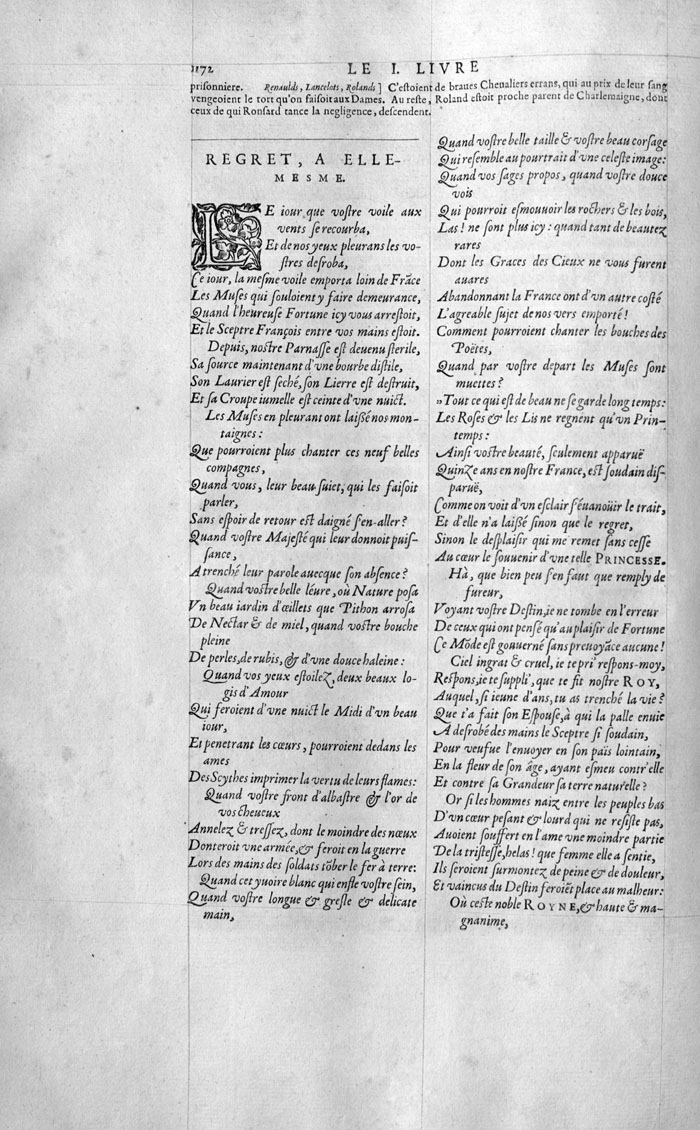 1172 LE I. LIVRE
prisonniere. Renaulds, Lancelots, Rolands] C'estoient de braues Cheualiers errans, qui au prix de leur sang
vengeoient le tort qu'on faisoit aux Dames. Au reste, Roland estoit proche parent de Charlemaigne, dont
ceux de qui Ronsard tance la negligence, descendent.
REGRET, A ELLE-
MESME.
LE iour que vostre voile aux
vents se recourba,
Et de nos yeux pleurans les vo-
stres desroba,
Ce iour, la mesme voile emporta loin de Frãce
Les Muses qui souloient y faire demeurance,
Quand l'heureuse Fortune icy vous arrestoit,
Et le Sceptre François entre vos mains estoit.
Depuis, nostre Parnasse est deuenu sterile,
Sa source maintenant d'vne bourbe distile,
Son Laurier est seché, son Lierre est destruit,
Et sa Croupe iumelle est ceinte d'vne nuict.
Les Muses en pleurant ont laissé nos mon-
taignes:
Que pourroient plus chanter ces neuf belles
compagnes,
Quand vous, leur beau suiet, qui les faisoit
parler,
Sans espoir de retour est daigné s'en-aller?
Quand vostre Majesté qui leur donnoit puis-
sance,
A trenché leur parole auecque son absence?
Quand vostre belle léure, où Nature posa
Vn beau iardin d'œillets que Pithon arrosa
De Nectar & de miel, quand vostre bouche
pleine
De perles, de rubis, & d'vne douce haleine:
Quand vos yeux estoilez, deux beaux lo-
gis d'Amour
Qui feroient d'vne nuict le Midi d'vn beau
iour,
Et penetrant les cœurs, pourroient dedans les
ames
Des Scythes imprimer la vertu de leurs flames:
Quand vostre front d'albastre & l'or de
vos cheueux
Annelez & tressez, dont le moindre des nœux
Donteroit vne armée, & feroit en la guerre
Lors des mains des soldats tõber le fer à terre:
Quand cet yuoire blanc qui enfle vostre sein,
Quand vostre longue & gresle & delicate
main,
Quand vostre belle taille & vostre beau corsage
Qui resemble au pourtrait d'vne celeste image:
Quand vos sages propos, quand vostre douce
vois
Qui pourroit esmouuoir les rochers & les bois,
Las! ne sont plus icy: quand tant de beautez
rares
Dont les Graces des Cieux ne vous furent
auares
Abandonnant la France ont d'vn autre costé
L'agreable sujet de nos vers emporté!
Comment pourroient chanter les bouches des
Poëtes,
Quand par vostre depart les Muses sont
muettes?
„Tout ce qui est de beau ne se garde long temps:
Les Roses & les Lis ne regnent qu'vn Prin-
temps:
Ainsi vostre beauté, seulement apparuë
Quinze ans en nostre France, est soudain dis-
paruë,
Comme on voit d'vn esclair s'éuanoüir le trait,
Et d'elle n'a laissé sinon que le regret,
Sinon le desplaisir qui me remet sans cesse
Au cœur le souuenir d'vne telle PRINCESSE.
Hà, que bien peu s'en faut que remply de
fureur,
Voyant vostre Destin, ie ne tombe en l'erreur
De ceux qui ont pensé qu'au plaisir de Fortune
Ce Mõde est gouuerné sans preuoyãce aucune!
Ciel ingrat & cruel, ie te pri' respons-moy,
Respons, ie te suppli', que te fit nostre ROY,
Auquel, si ieune d'ans, tu as trenché la vie?
Que t'a fait son Espouse, à qui la palle enuie
A desrobé des mains le Sceptre si soudain,
Pour veufue l'enuoyer en son païs lointain,
En la fleur de son âge, ayant esmeu contr'elle
Et contre sa Grandeur sa terre naturelle?
Or si les hommes naiz entre les peuples bas
D'vn cœur pesant & lourd qui ne resiste pas,
Auoient souffert en l'ame vne moindre partie
De la tristesse, helas! que femme elle a sentie,
Ils seroient surmontez de peine & de douleur,
Et vaincus du Destin feroiẽt place au malheur:
Où ceste noble ROYNE, & haute & ma-
gnanime,